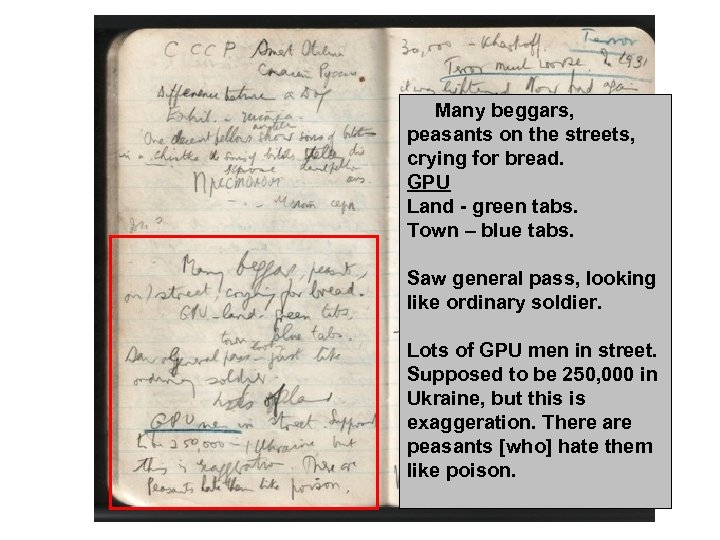 C C C P
Difference between a Dog
One decent fellow
in a chistka
Many beggars, peasants
on street, crying for bread.
GPU - land - green tabs,
town - blue tabs.
Saw general pass - just like
ordinary soldier.
GPU men in street. Supposed
to be 250,000 - Ukraine but
this is exaggeration. There are
Peasants hate them like poison.
30,000 - Kharkoff. Terror
Terror much worse. In 1931
it was lightened. Now hard again
Many beggars,
peasants on the streets,
crying for bread.
GPU
Land - green tabs.
Town – blue tabs.
Saw general pass, looking
like ordinary soldier.
Lots of GPU men in street.
Supposed to be 250,000 in
Ukraine, but this is
exaggeration. There are
peasants [who] hate them
like poison.